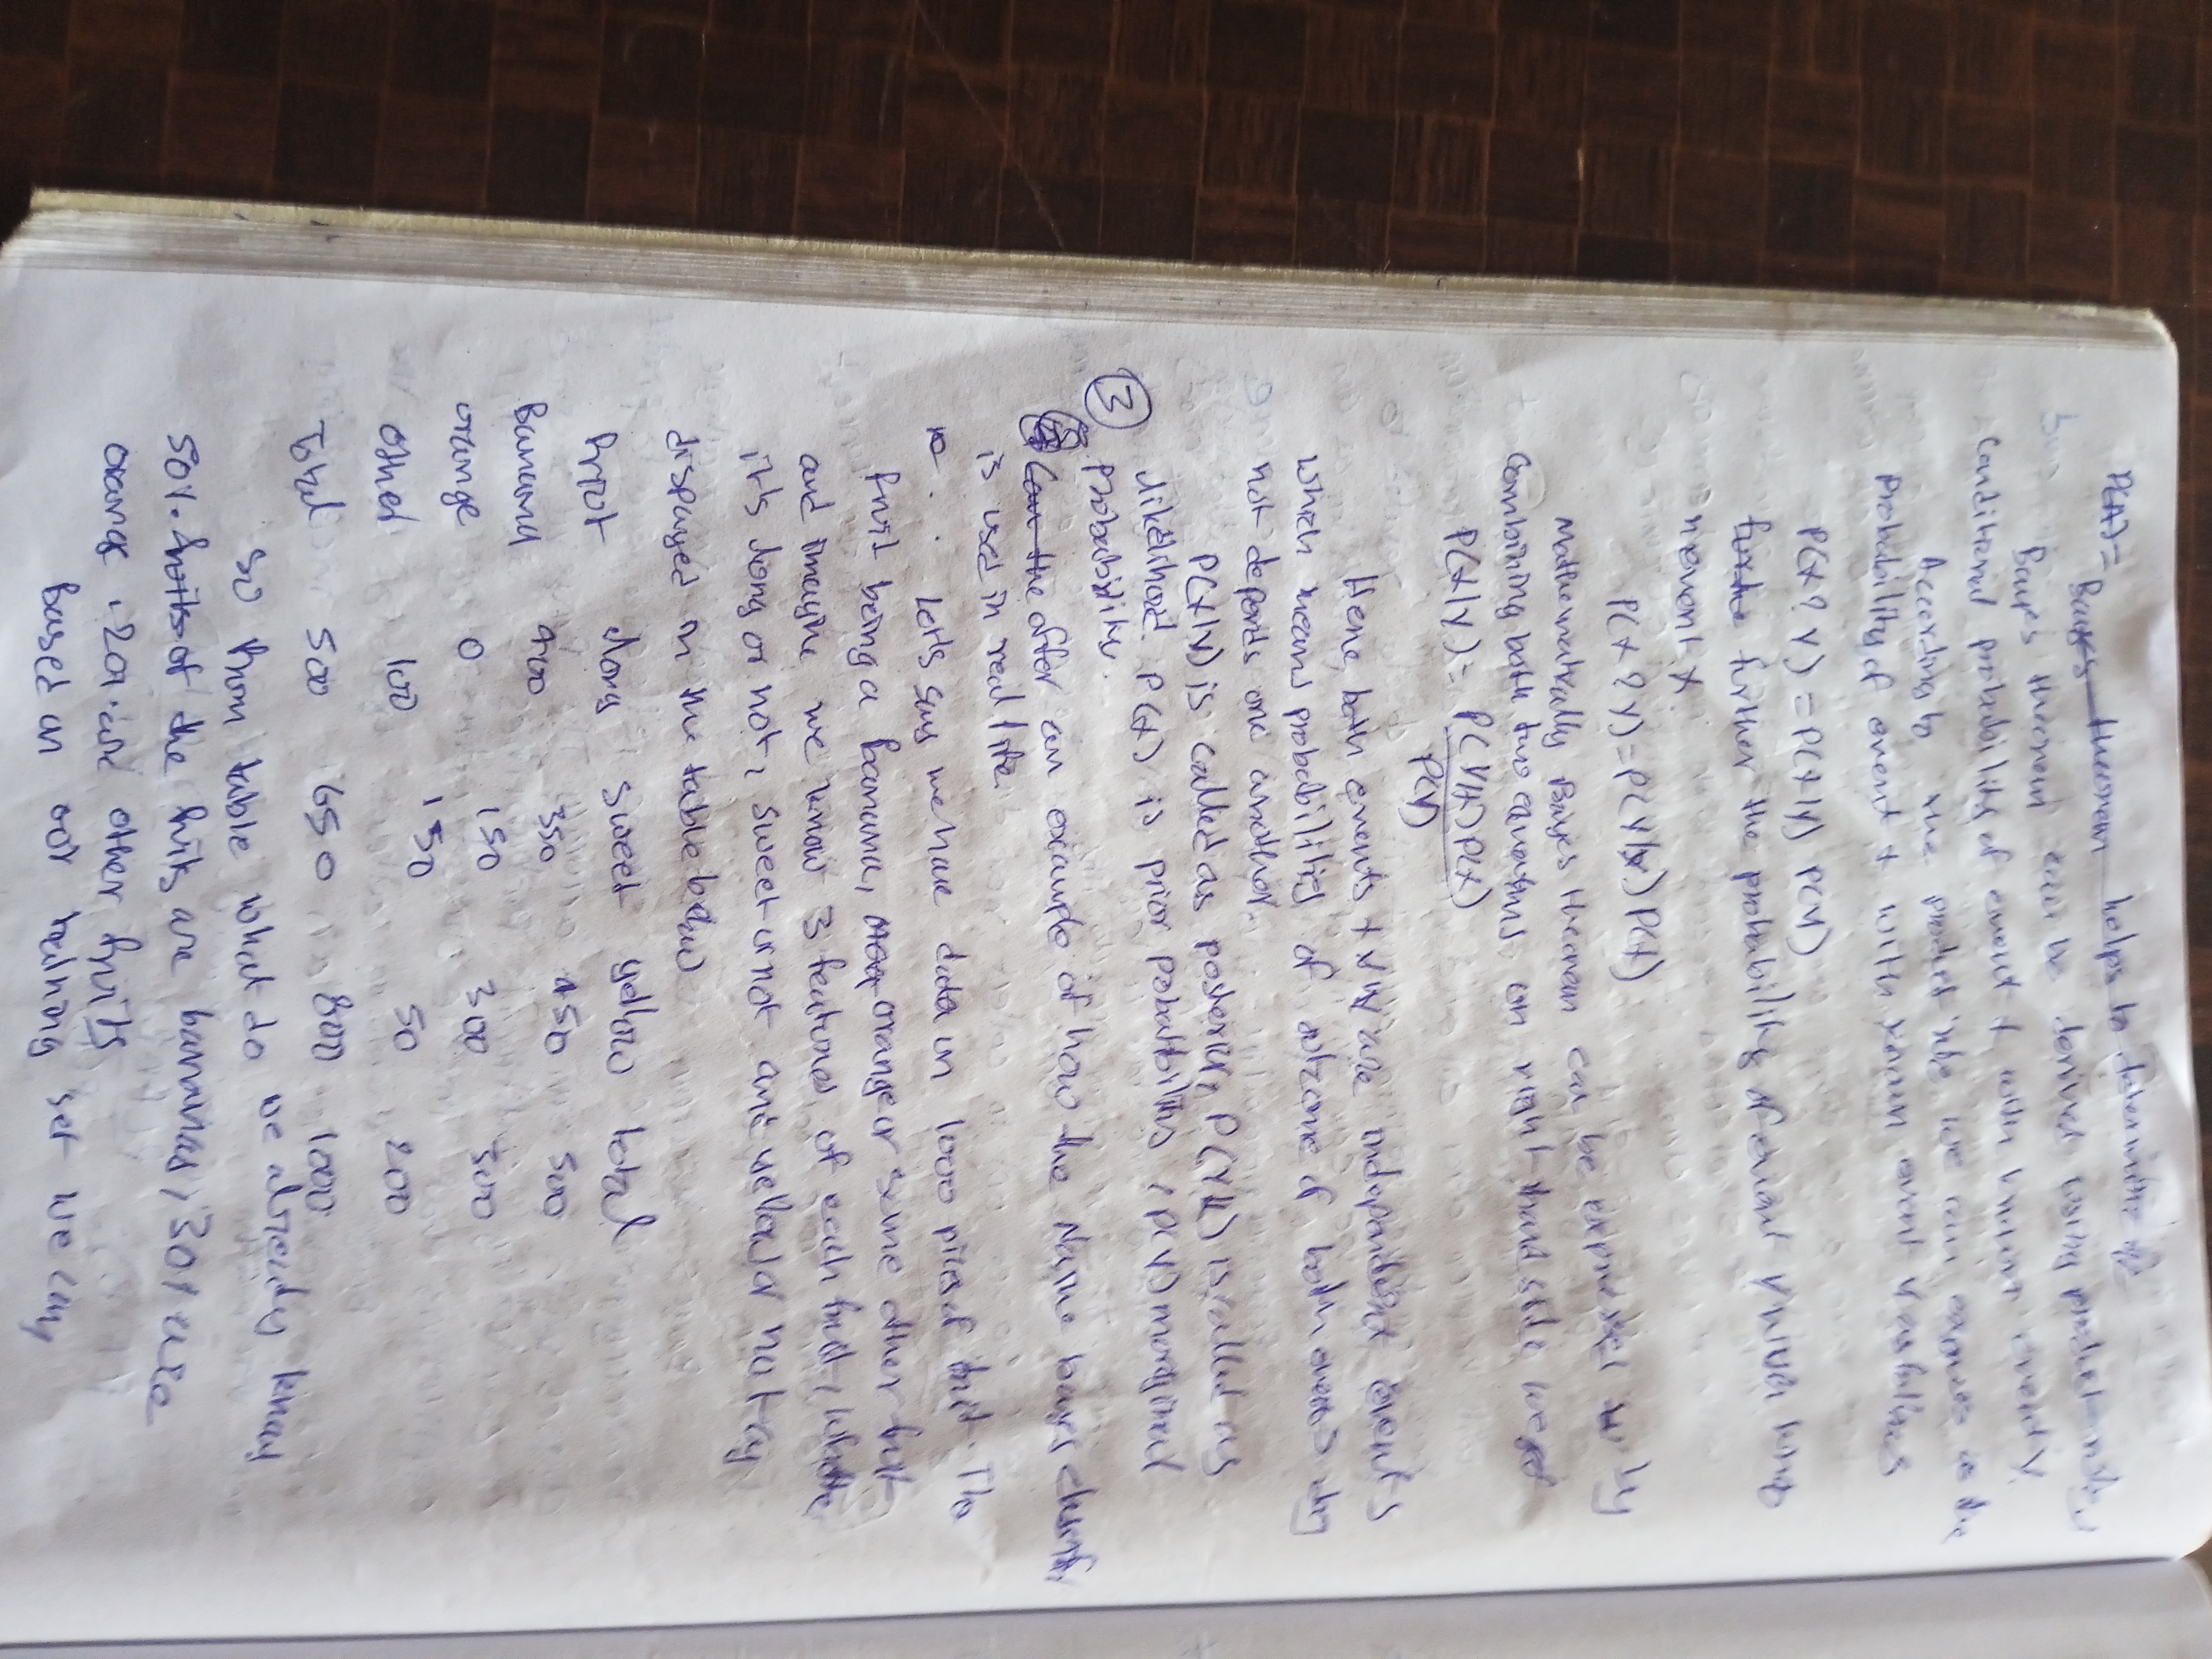 P(A) = Bayes theorem helps to determine
Bayes theorem can be derived using product rule,
conditional probability of event X with known event Y
According to the product rule we can express as the
Probability of event X with known event Y as follows
P(X ? Y) = P(X|Y) P(Y)
further the probability of event Y
n event X
P(X ? Y) = P(Y|X) P(X)
Mathematically Bayes theorem can be expressed by
combining both two equations on right hand side we get
P(X|Y) = P(Y|X) P(X)
P(Y)
Here, both events X & Y are independent events
which means probabilities of outcome of both events
not depends one another
P(X|Y) is called as posterior, P(Y|X) is called as
likelihood P(X) is prior probabilities, P(Y) marginal
Probability.
③ offer an example of how the Naive bayes
is used in real life
lets say we have data on 1000 pices of fruit. The
fruit being a Banana, orange or some other fruit
and imagine we know 3 features of each fruit, whether
it's long or not, sweet or not and yellow or not as
displayed in the table below
long sweet yellow total
Banana 400 350 450 500
orange 0 150 300 300
other 100 150 50 200
Total 500 650 800 1000
so from table what do we already know
50%. of the fruits are bananas, 30% are
orange, 20%. are other fruits
Based on our training set we can